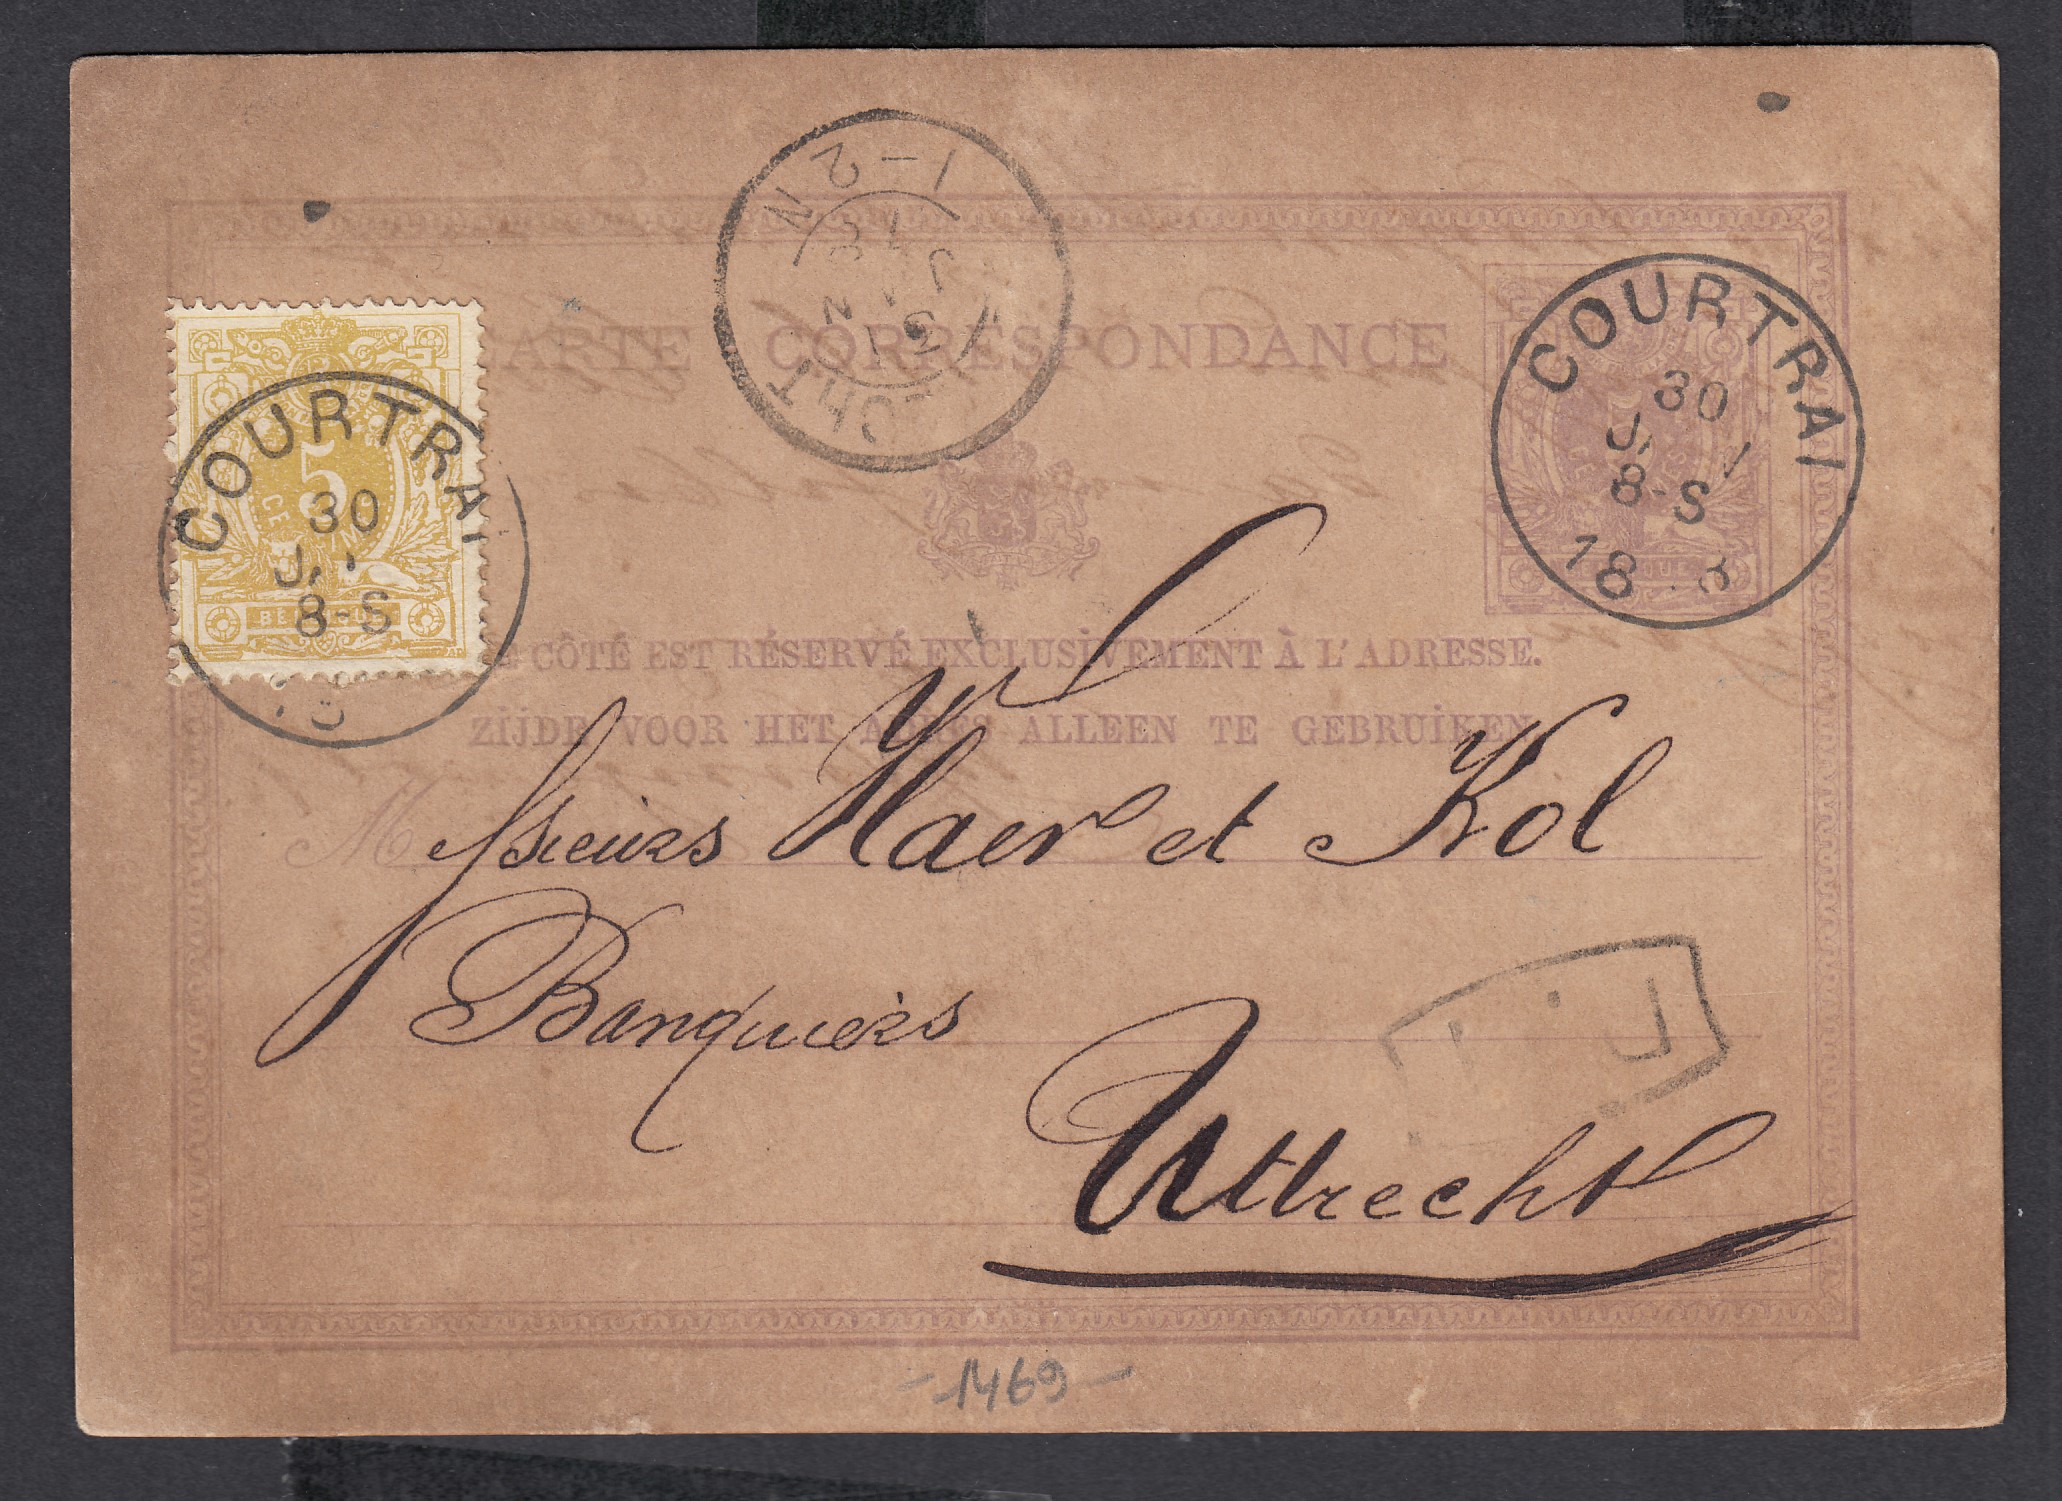 1-2 N
COURTRAI
30
8-S
18
CARTE CORRESPONDANCE
5
COURTRAI
30
8-S
CÔTÉ EST RÉSERVÉ EXCLUSIVEMENT À L'ADRESSE.
ZIJDE VOOR HET ADRES ALLEEN TE GEBRUIKEN
Messieurs Vlaer et Kol
Banquiers
Uttrecht
-1469-